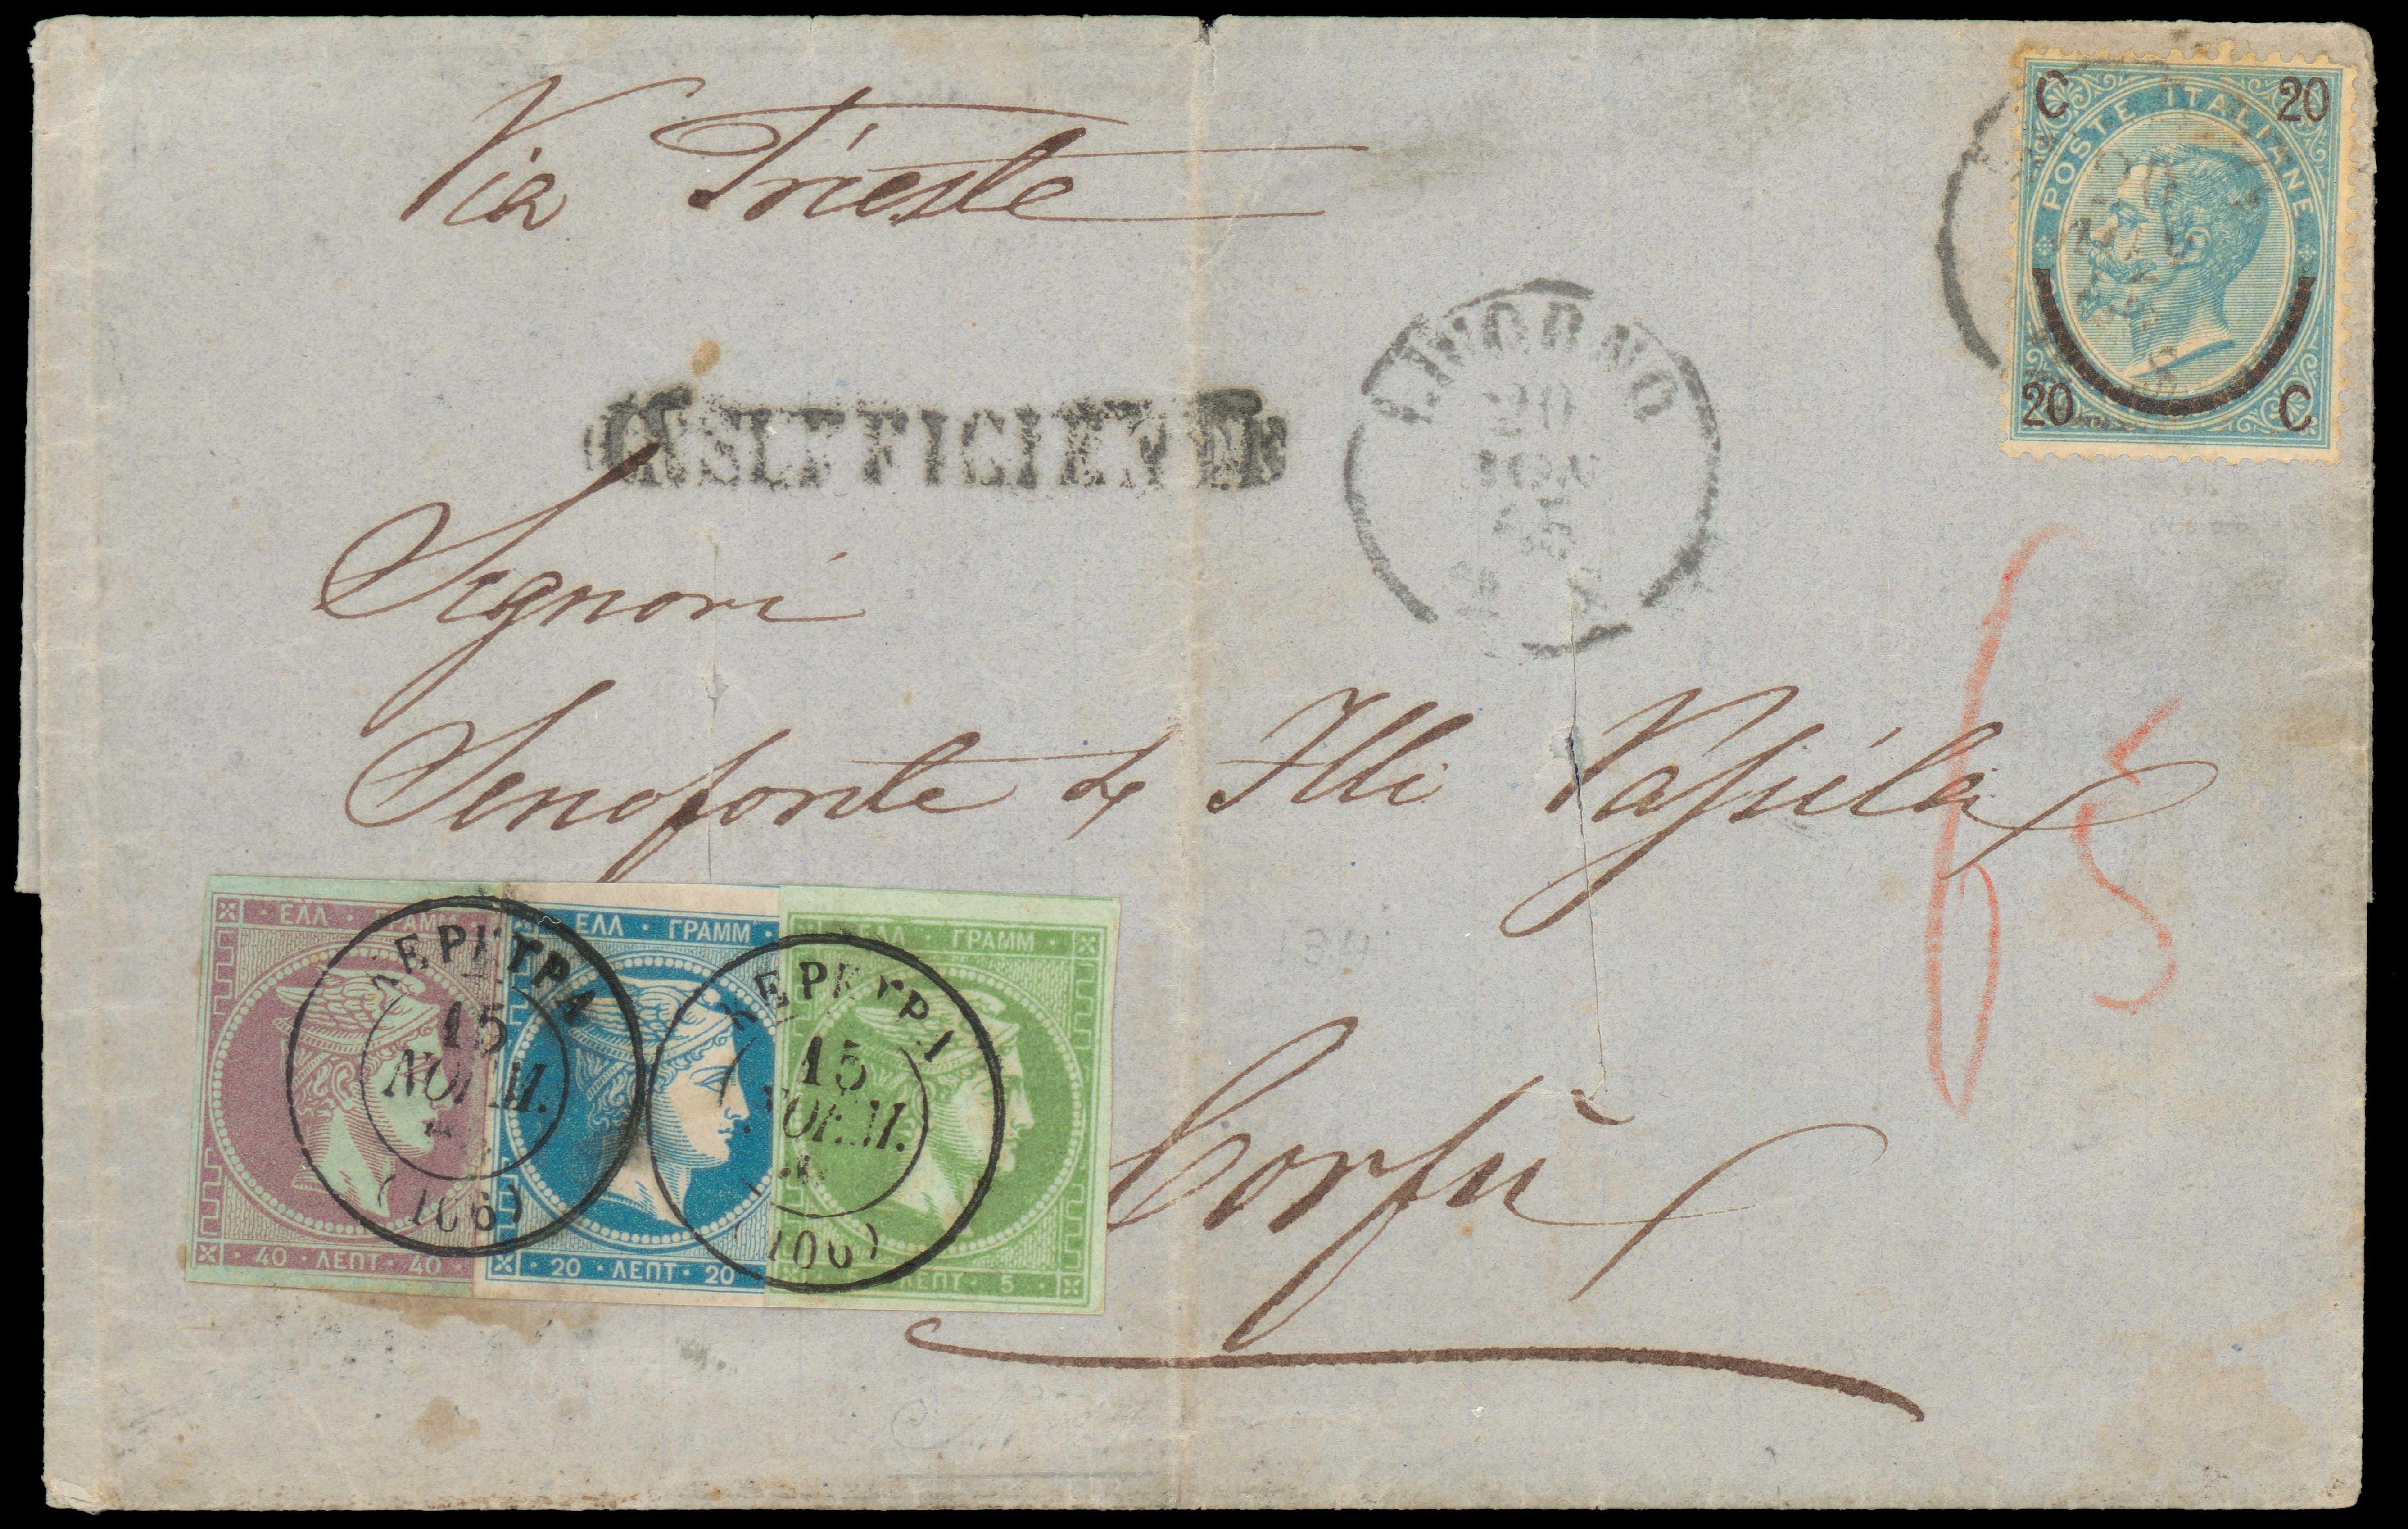 Via Trieste
C 20
POSTE ITALIANE
20 C
INSUFFICIENTE
LIVORNO
20
NOV
65
Signori
Senofonte & Flli Vassila
65
Corfù
ΕΛΛ · ΓΡΑΜΜ
40 · ΛΕΠΤ · 40
ΕΛΛ · ΓΡΑΜΜ
20 · ΛΕΠΤ · 20
ΕΛΛ · ΓΡΑΜΜ
ΛΕΠΤ · 5
ΚΕΡΚΥΡΑ
15
ΝΟΕΜ.
(106)
ΚΕΡΚΥΡΑ
15
ΝΟΕΜ.
(106)